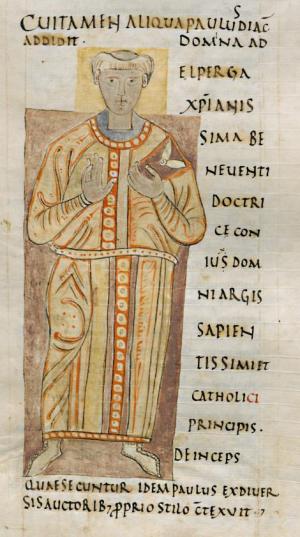 CUI TAMEN ALIQUA PAULUS DIAC̄
ADDIDIT. DOMNA AD
ELPERGA
XP̄IANIS
SIMA BE
NEUENTI
DOCTRI
CE CON
IUS DOM
NI ARGIS
SAPIEN
TISSIMI ET
CATHOLICI
PRINCIPIS.
DEINCEPS
QUAE SECUNTUR IDEM PAULUS EX DIUER
SIS AUCTORIB; PPRIO STILO CTEXUIT